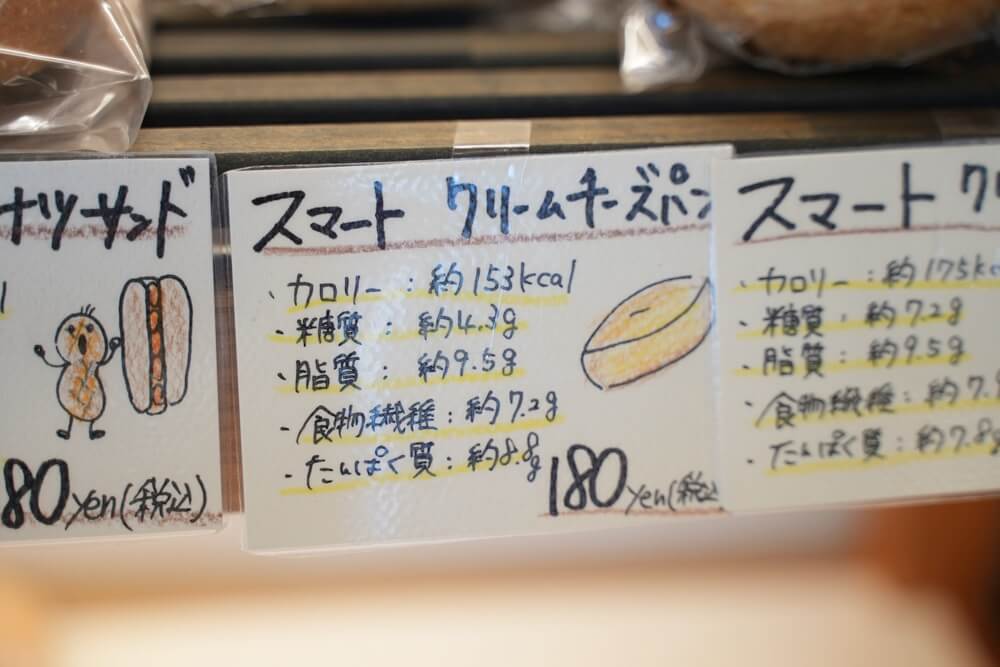 ナツサンド
80yen(税込)
スマート クリームチーズパン
・カロリー：約153kcal
・糖質：約4.3g
・脂質：約9.5g
・食物繊維：約7.2g
・たんぱく質：約8.8g
180yen(税込
スマート ク
・カロリー：約175k
・糖質：約7.2g
・脂質：約9.5g
・食物繊維：約7.
・たんぱく質：約7.8g